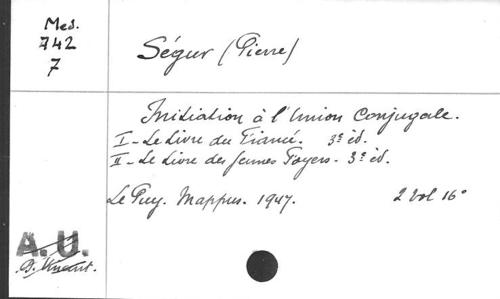 Med.
742
7
Ségur (Pierre)
Initiation à l'Union Conjugale.
I - Le Livre du Fiancé. 3e éd.
II - Le Livre des Jeunes Foyers. 3e éd.
Le Puy. Mappus. 1947. 2 vol 16°
A. U.
B. Vincent.